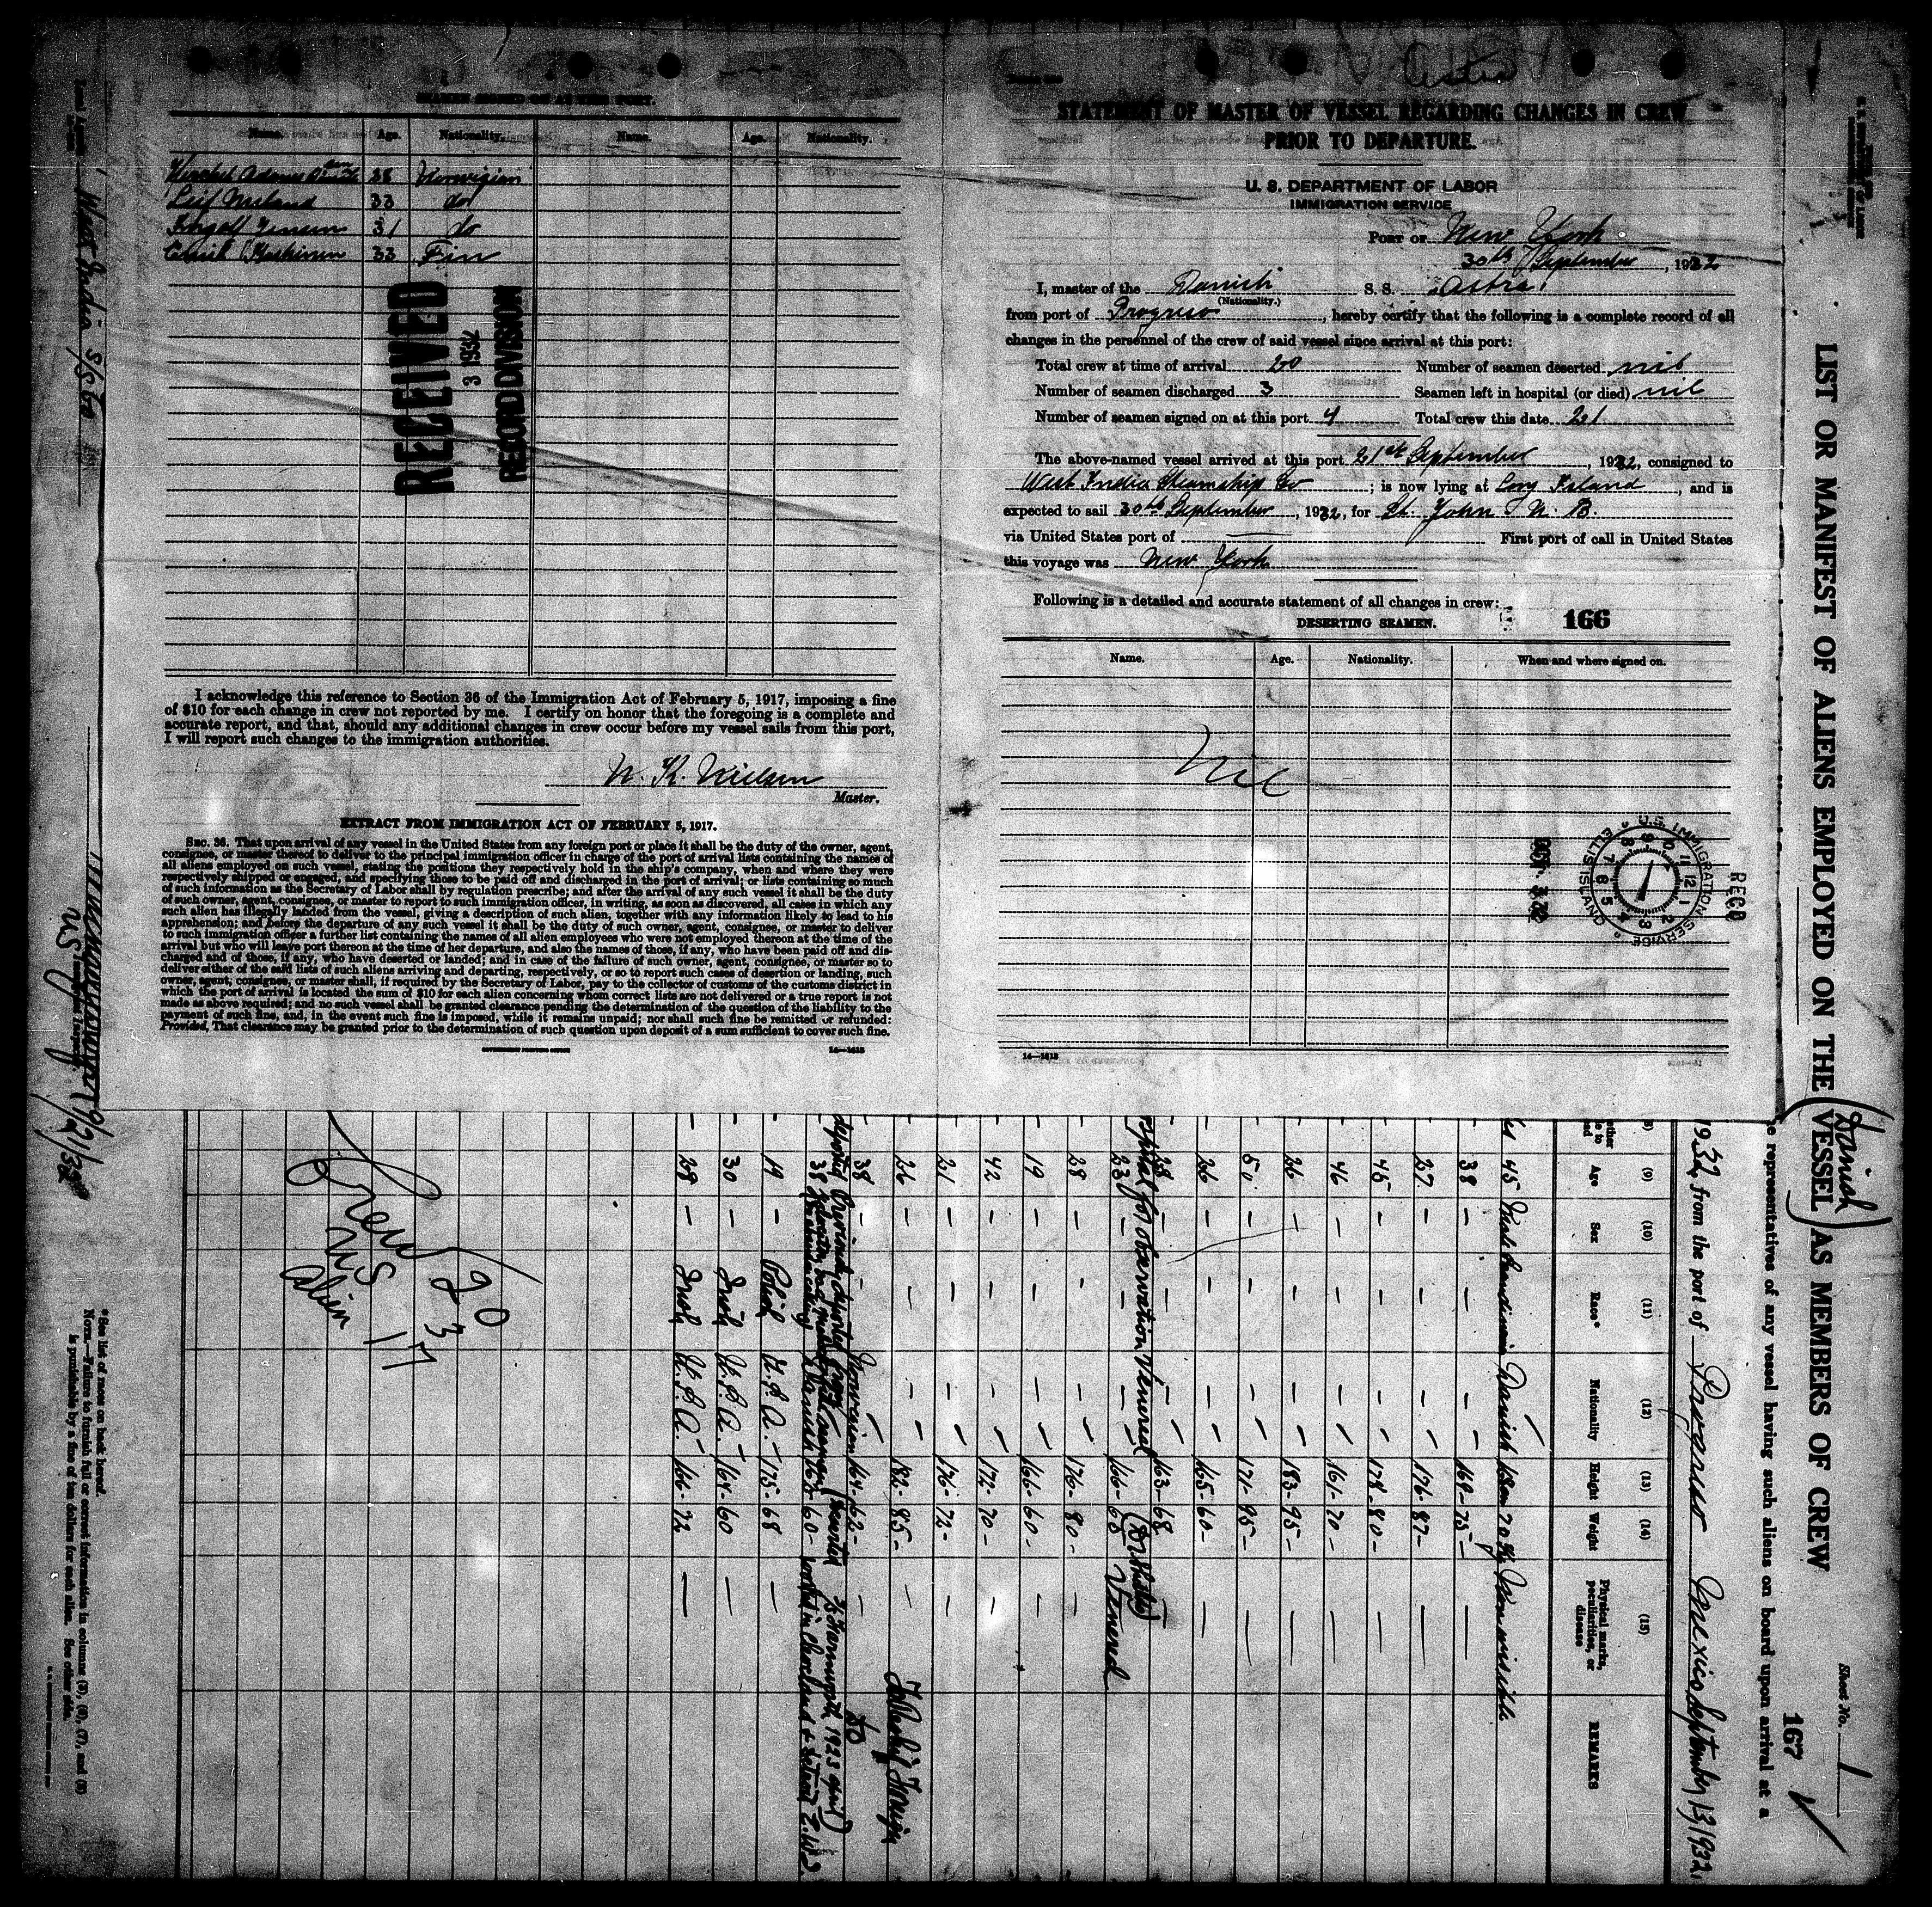 SEAMEN SIGNED ON AT THIS PORT.
Name. Age. Nationality. Name. Age. Nationality.
38 Norwegian
Leif 33 do
31 do
33 Fin
RECEIVED
3 1932
RECORD DIVISION
I acknowledge this reference to Section 36 of the Immigration Act of February 5, 1917, imposing a fine
of $10 for each change in crew not reported by me. I certify on honor that the foregoing is a complete and
accurate report, and that, should any additional changes in crew occur before my vessel sails from this port,
I will report such changes to the immigration authorities.
N. K. Nielsen
Master.
EXTRACT FROM IMMIGRATION ACT OF FEBRUARY 5, 1917.
SEC. 36. That upon arrival of any vessel in the United States from any foreign port or place it shall be the duty of the owner, agent,
consignee, or master thereof to deliver to the principal immigration officer in charge of the port of arrival lists containing the names of
all aliens employed on such vessel, stating the positions they respectively hold in the ship's company, when and where they were
respectively shipped or engaged, and specifying those to be paid off and discharged in the port of arrival; or lists containing so much
of such information as the Secretary of Labor shall by regulation prescribe; and after the arrival of any such vessel it shall be the duty
of such owner, agent, consignee, or master to report to such immigration officer, in writing, as soon as discovered, all cases in which any
such alien has illegally landed from the vessel, giving a description of such alien, together with any information likely to lead to his
apprehension; and before the departure of any such vessel it shall be the duty of such owner, agent, consignee, or master to deliver
to such immigration officer a further list containing the names of all alien employees who were not employed thereon at the time of the
arrival but who will leave port thereon at the time of her departure, and also the names of those, if any, who have been paid off and dis-
charged and of those, if any, who have deserted or landed; and in case of the failure of such owner, agent, consignee, or master so to
deliver either of the said lists of such aliens arriving and departing, respectively, or so to report such cases of desertion or landing, such
owner, agent, consignee, or master shall, if required by the Secretary of Labor, pay to the collector of customs of the customs district in
which the port of arrival is located the sum of $10 for each alien concerning whom correct lists are not delivered or a true report is not
made as above required; and no such vessel shall be granted clearance pending the determination of the question of the liability to the
payment of such fine, and, in the event such fine is imposed, while it remains unpaid; nor shall such fine be remitted or refunded:
Provided, That clearance may be granted prior to the determination of such question upon deposit of a sum sufficient to cover such fine.
GOVERNMENT PRINTING OFFICE 14—1618
STATEMENT OF MASTER OF VESSEL REGARDING CHANGES IN CREW
PRIOR TO DEPARTURE.
U. S. DEPARTMENT OF LABOR
IMMIGRATION SERVICE
PORT OF New York
30th September, 1932
I, master of the Danish S. S. Astra,
(Nationality.)
from port of Progreso, hereby certify that the following is a complete record of all
changes in the personnel of the crew of said vessel since arrival at this port:
Total crew at time of arrival 20 Number of seamen deserted nil
Number of seamen discharged 3 Seamen left in hospital (or died) nil
Number of seamen signed on at this port 4 Total crew this date 21
The above-named vessel arrived at this port 21st September, 1932, consigned to
West India Steamship Co; is now lying at Long Island, and is
expected to sail 30th September, 1932, for St. John N. B.
via United States port of — First port of call in United States
this voyage was New York
Following is a detailed and accurate statement of all changes in crew:
DESERTING SEAMEN. 166
Name. Age. Nationality. When and where signed on.
Nil
U.S. IMMIGRATION SERVICE ELLIS ISLAND
RECD
14—1618
LIST OR MANIFEST OF ALIENS EMPLOYED ON THE VESSEL AS MEMBERS OF CREW
(Danish)
Sheet No. 1
167
representatives of any vessel having such aliens on board upon arrival at a
1932, from the port of Progreso Mexico September 13, 1932
(9) (10) (11) (12) (13) (14) (15)
Age Sex Race* Nationality Height Weight Physical marks, peculiarities, or disease REMARKS
45 Male Scandinavian Danish 70 Kg None visible
38 — — — 169 - 75 —
27 — — — 176 - 87 —
45 — — — 178 - 80 —
46 — — — 161 - 70 —
26 — — — 183 - 95 —
50 — — — 171 - 95 —
26 — — — 165 - 60 —
28 — — — 163 - 68
hospital for observation Venereal
23 — — — 166 - 68 Venereal
28 — — — 176 - 80 —
19 — — — 166 - 60 —
42 — — — 172 - 70 —
21 — — — 176 - 72 —
26 — — — 182 - 85 —
38 — — Norwegian 164 - 62 —
38 Danish 60
19 — Polish U.S.A. 175 - 68 —
30 — Irish U.S.A. 164 - 60 —
28 — Irish U.S.A. 166 - 72 —
Crew 20
US 3
Alien 17
*See list of races on back hereof.
NOTE.—Failure to furnish full or correct information in columns (5), (6), (7), and (8)
is punishable by a fine of ten dollars for each alien. See other side.
West India S/S Co
US Immigrant Inspector.
9/21/32